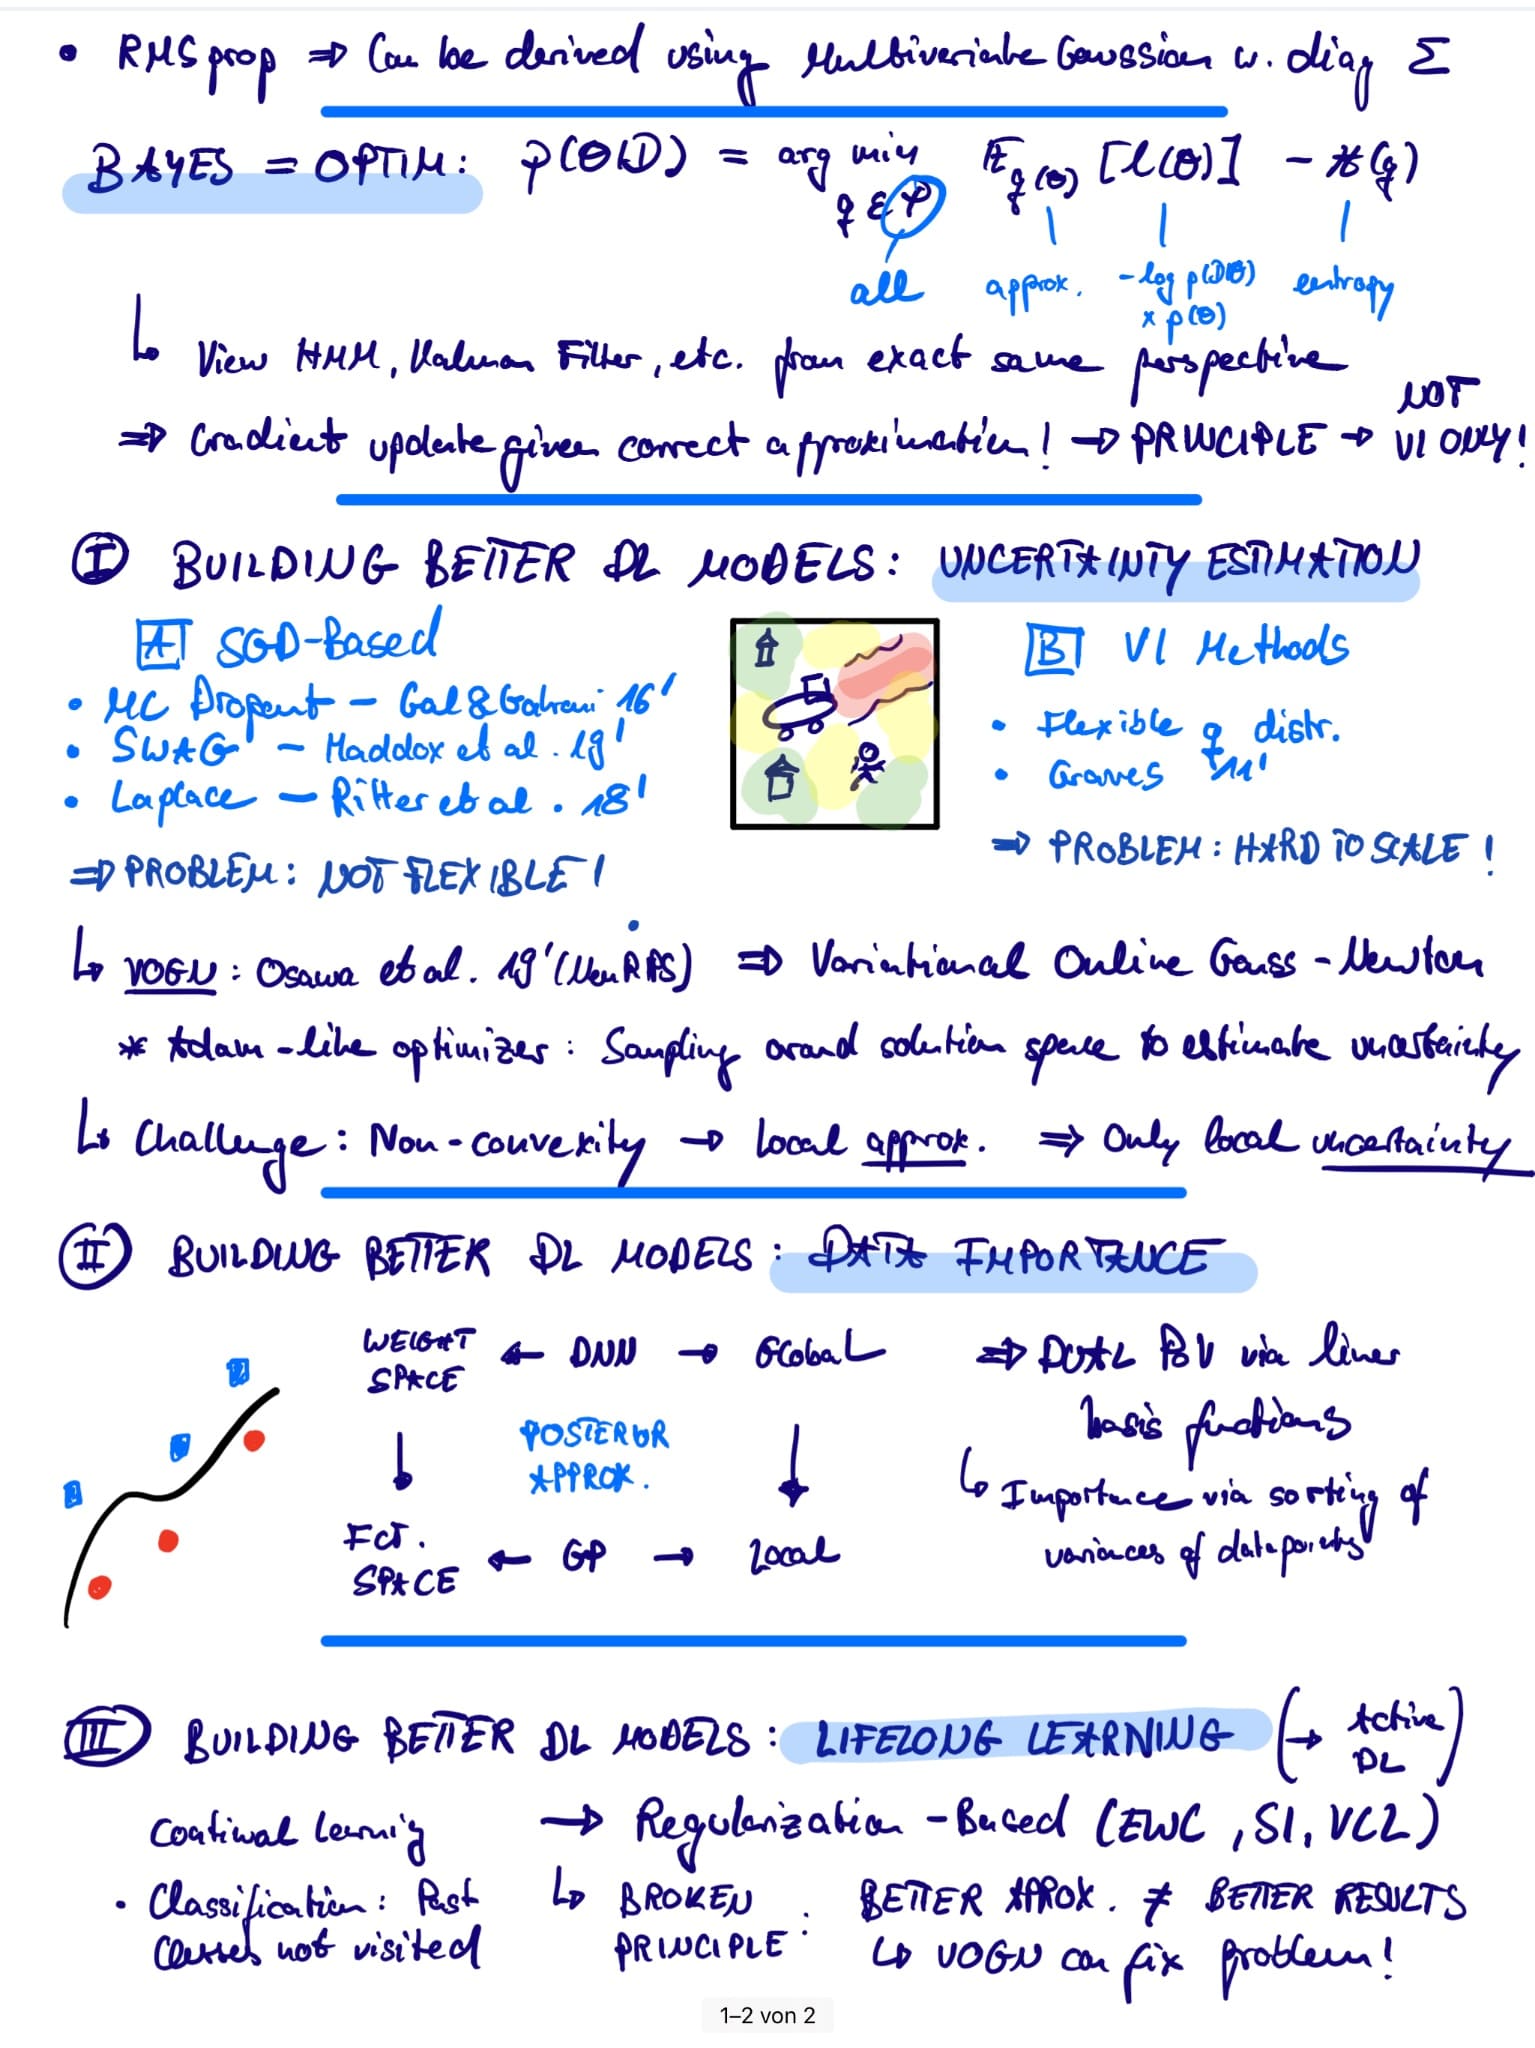 • RMSprop ⇒ Can be derived using Multivariate Gaussian w. diag Σ
BAYES = OPTIM: p(θ|D) = arg min E_q(θ) [l(θ)] - H(q)
q ∈ P
all approx. -log p(D|θ) entropy
x p(θ)
↳ View HMM, Kalman Filter, etc. from exact same perspective
⇒ Gradient update given correct approximation! → PRINCIPLE → NOT VI ONLY!
I BUILDING BETTER DL MODELS: UNCERTAINTY ESTIMATION
A SGD-Based
• MC Dropout - Gal & Gahrani 16'
• SWAG - Maddox et al. 19'
• Laplace - Ritter et al. 18'
⇒ PROBLEM: NOT FLEXIBLE!
B VI Methods
• Flexible q distr.
• Graves '11'
⇒ PROBLEM: HARD TO SCALE!
↳ VOGN: Osawa et al. 19' (NeuRIPS) ⇒ Variational Online Gauss-Newton
* Adam-like optimizer: Sampling arond solution space to estimate uncertainty
↳ Challenge: Non-convexity → Local approx. ⇒ Only local uncertainty
II BUILDING BETTER DL MODELS: DATA IMPORTANCE
WEIGHT SPACE ← DNN → Global
↓ POSTERIOR APPROX. ↓
FCT. SPACE ← GP → Local
⇒ DUAL POV via liner
basis functions
↳ Importance via sorting of
variances of datapoints
III BUILDING BETTER DL MODELS: LIFELONG LEARNING (→ Active DL)
Continual Learning → Regularization-Based (EWC, SI, VCL)
• Classification: Past
Classes not visited
↳ BROKEN PRINCIPLE: BETTER APROX. ≠ BETTER RESULTS
↳ VOGN can fix problem!
1–2 von 2